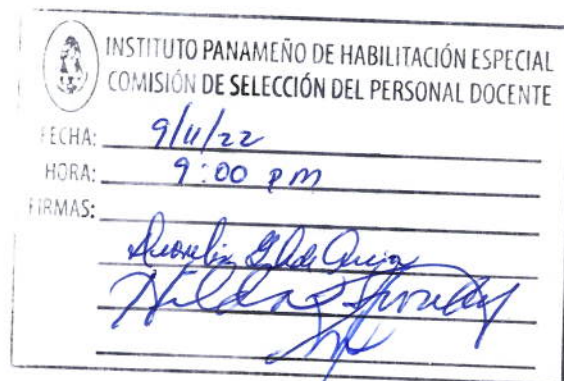 INSTITUTO PANAMEÑO DE HABILITACIÓN ESPECIAL
COMISIÓN DE SELECCIÓN DEL PERSONAL DOCENTE
FECHA: 9/11/22
HORA: 9:00 pm
FIRMAS:
Hilda